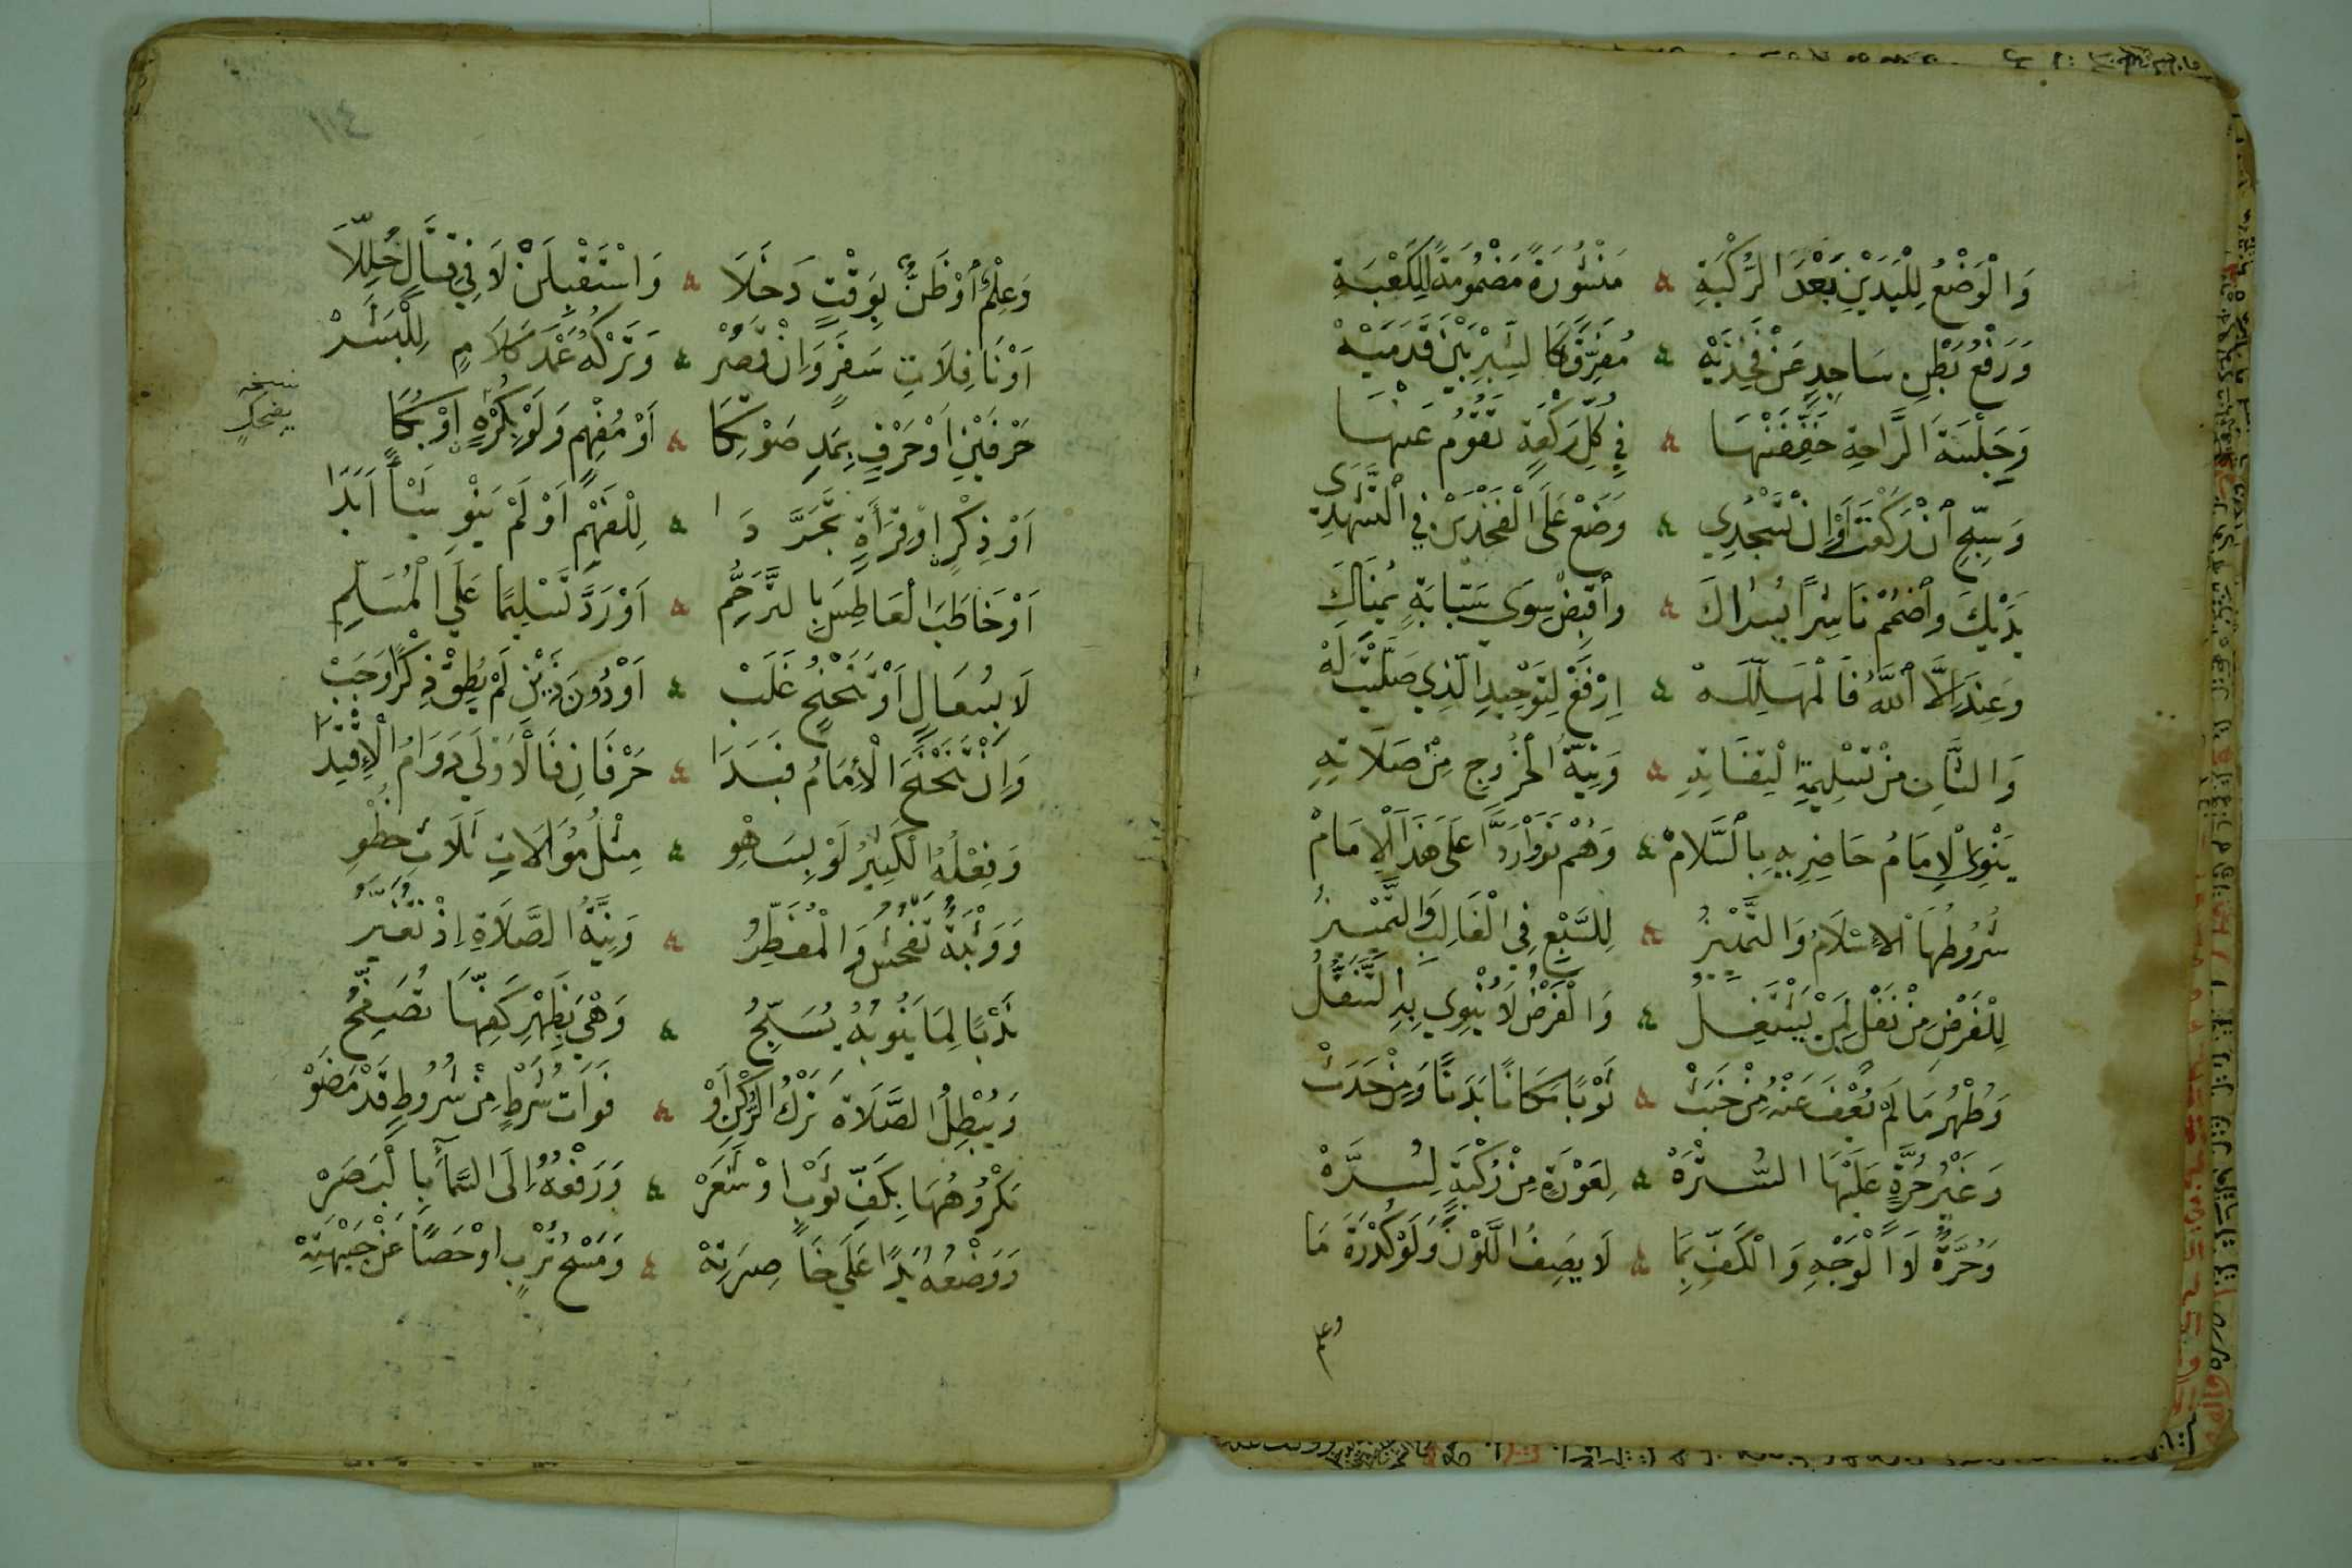 وَالْوَضْعُ لِلْيَدَيْنِ بَعْدَ الرُّكْبَةِ ۵ مَنْشُورَةً مَضْمُومَةً لِلْكَعْبَةِ
وَرَفْعُ بَطْنِ سَاجِدٍ عَنْ فَخِذَيْهْ ۵ مُفَرِّقًا كَالشِّبْرِ بَيْنَ قَدَمَيْهْ
وَجِلْسَةَ الرَّاحِةِ خَفِّفَنْهَا ۵ فِي كُلِّ رَكْعَةٍ تَقُومُ عَنْهَا
وَسَبِّحِ ٱنْ رَكَعْتَ أَوْ إِنْ تَسْجُدِي ۵ وَضَعْ عَلَى الْفَخْذَيْنِ فِي ٱلتَّشَهُّدِي
يَدَيْكَ وٱضْمُمْ نَاشِرًا يُسْرَاكَ ۵ وٱقْبِضْ سِوَى سَبَّابَةٍ يُمْنَاكَ
وَعِنْدَ إِلَّا ٱللهُ فَالْمُهَلِّلَهْ ۵ اِرْفَعْ لِتَوْحِيدِ الَّذِي صَلَّيْتَ لَهْ
وَالثَّانِ مِنْ تَسْلِيمَةِ الْتِفَاتِهِ ۵ وَنِيَّةُ الْخُرُوجِ مِنْ صَلَاتِهِ
يَنْوِي الْإِمَامُ حَاضِرِيهِ بِٱلسَّلَامْ ۵ وَهُمْ نَوَوْا رَدًّا عَلَى هَذَا الْإِمَامْ
شُرُوطُهَا الْإِسْلَامُ وَالتَّمْيِيزُ ۵ لِلسَّبْعِ فِي الْغَالِبِ وَالتَّمْيِيزُ
لِلْفَرْضِ مِنْ نَفْلٍ لِمَنْ يَشْتَغِلُ ۵ وَالْفَرْضُ لَا يُنْوِي بِهِ التَّنَفُّلُ
وَطُهْرُ مَا لَمْ يُعْفَ عَنْهُ مِنْ خَبَثْ ۵ ثَوْبًا مَكَانًا بَدَنًا وَمِنْ حَدَثْ
وَغَيْرُ حُرَّةٍ عَلَيْهَا السُّتْرَهْ ۵ لِعَوْرَةٍ مِنْ رُكْبَةٍ لِسُرَّهْ
وَحُرَّةٌ لَا الْوَجْهِ وَالْكَفِّ بِمَا ۵ لَا يَصِفُ اللَّوْنَ وَلَوْ كُدْرَةَ مَا
وعلم
١١٤
وَعِلْمٌ أَوْ ظَنٌّ بِوَقْتٍ دَخَلَا ۵ وَاسْتَقْبِلَنْ لَا فِي قِتَالٍ حُلِّلَا
أَوْ نَافِلَاتِ سَفَرٍ وَإِنْ قَصُرْ ۵ وَتَرْكُهُ عَمْدَ كَلَامٍ لِلْبَشَرْ
حَرْفَيْنِ أَوْ حَرْفٍ بِمَدٍّ صَوْتِكَا ۵ أَوْ مُفْهِمٍ وَلَوْ بِكُرْهٍ أَوْ بُكَا
نسخه
بضحك
أَوْ ذِكْرٍ أَوْ قِرَاءَةٍ تَجَرَّدَا ۵ لِلْفَهْمِ أَوْ لَمْ يَنْوِ شَيْأً أَبَدًا
أَوْ خَاطَبَ الْعَاطِسَ بِالتَّرَحُّمِ ۵ أَوْ رَدَّ تَسْلِيمًا عَلَى الْمُسَلِّمِ
لَا بِسُعَالٍ أَوْ تَنَحْنُحٍ غَلَبْ ۵ أَوْ دُونَ ذَيْنِ لَمْ يُطِقْ ذِكْرًا وَجَبْ
وَإِنْ تَنَحْنَحَ الْإِمَامُ فَبَدَا ۵ حَرْفَانِ فَالْأَوْلَى دَوَامُ الْإِقْتِدَا
وَفِعْلُهُ الْكَثِيرُ لَوْ بِسَهْوِ ۵ مِثْلُ مُوَالَاتِ ثَلَاثِ خَطْوِ
وَوَثْبَةٌ تَفْحُشُ وَالْمُفَطِّرُ ۵ وَنِيَّةُ الصَّلَاةِ إِذْ تُغَيَّرُ
نَدْبًا لِمَا يَنُوبُهُ يُسَبِّحُ ۵ وَهْيَ بِظَهْرِ كَفِّهَا تُصَفِّحُ
وَيُبْطِلُ الصَّلَاةَ تَرْكُ الرُّكْنِ أَوْ ۵ فَوَاتُ شَرْطٍ مِنْ شُرُوطٍ قَدْ مَضَوْ
مَكْرُوهُهَا بِكَفِّ ثَوْبٍ أَوْ شَعَرْ ۵ وَرَفْعُهُ إِلَى السَّمَآءِ بِالْبَصَرْ
وَوَضْعُهُ يَدًا عَلَى خَاصِرَتِهْ ۵ وَمَسْحُ تُرْبٍ أَوْ حَصًا عَنْ جَبْهَتِهْ